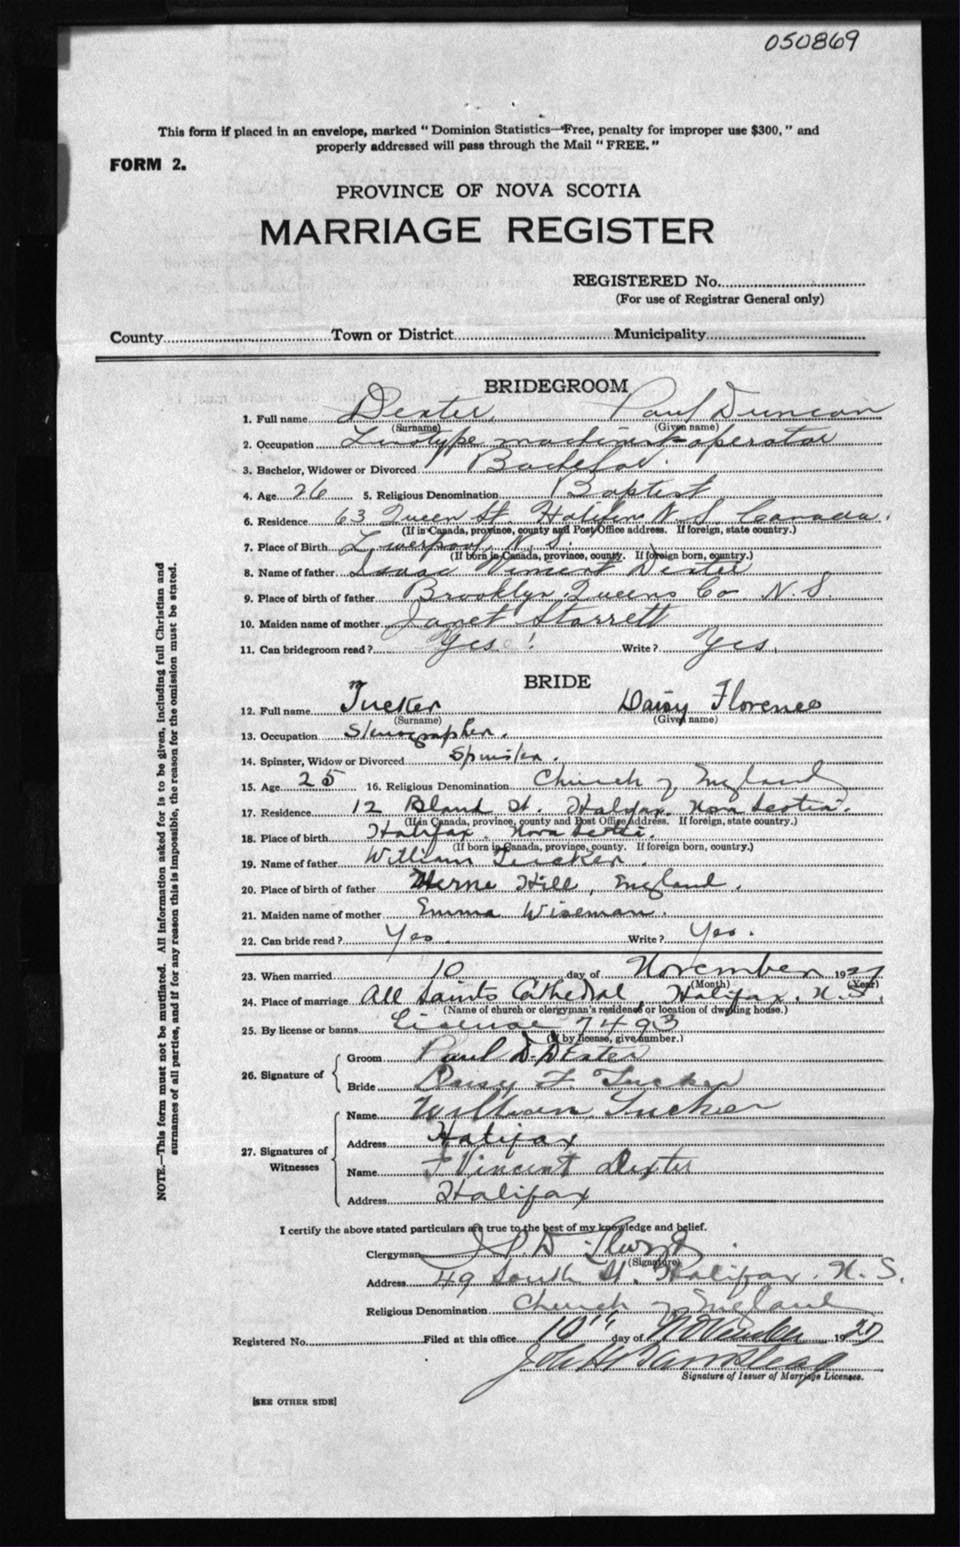 050869
This form if placed in an envelope, marked "Dominion Statistics—Free, penalty for improper use $300," and
properly addressed will pass through the Mail "FREE."
FORM 2.
PROVINCE OF NOVA SCOTIA
MARRIAGE REGISTER
REGISTERED No.
(For use of Registrar General only)
County Town or District Municipality
BRIDEGROOM
1. Full name Dexter, Paul Duncan
(Surname) (Given name)
2. Occupation Linotype machinist-operator
3. Bachelor, Widower or Divorced Bachelor.
4. Age 26 5. Religious Denomination Baptist
6. Residence 63 Queen St. Halifax N.S. Canada.
(If in Canada, province, county and Post Office address. If foreign, state country.)
7. Place of Birth Liverpool, N.S.
(If born in Canada, province, county. If foreign born, country.)
8. Name of father Isaac Vincent Dexter
9. Place of birth of father Brooklyn Queens Co. N.S.
10. Maiden name of mother Janet Starrett
11. Can bridegroom read? Yes Write? Yes.
BRIDE
12. Full name Tucker Daisy Florence
(Surname) (Given name)
13. Occupation Stenographer.
14. Spinster, Widow or Divorced Spinster.
15. Age 25 16. Religious Denomination Church of England
17. Residence 12 Bland St. Halifax, Nova Scotia.
(If in Canada, province, county and Post Office address. If foreign, state country.)
18. Place of birth Halifax. Nova Scotia.
(If born in Canada, province, county. If foreign born, country.)
19. Name of father William Tucker.
20. Place of birth of father Herne Hill, England.
21. Maiden name of mother Emma Wiseman.
22. Can bride read? Yes. Write? Yes.
23. When married 10 day of November 1927
(Month) (Year)
24. Place of marriage All Saints Cathedral, Halifax. N.S.
(Name of church or clergyman's residence or location of dwelling house.)
25. By license or banns License 7493
(If by license, give number.)
26. Signature of
Groom Paul D. Dexter
Bride Daisy F. Tucker
27. Signatures of Witnesses
Name William Tucker
Address Halifax
Name Vincent Dexter
Address Halifax
I certify the above stated particulars are true to the best of my knowledge and belief.
Clergyman
(Signature)
Address 49 South St. Halifax. N.S.
Religious Denomination Church of England
Registered No. Filed at this office 10th day of November 1927
John
Signature of Issuer of Marriage Licenses.
[SEE OTHER SIDE]
NOTE.—This form must not be mutilated. All information asked for is to be given, including full Christian and
surnames of all parties, and if for any reason this is impossible, the reason for the omission must be stated.